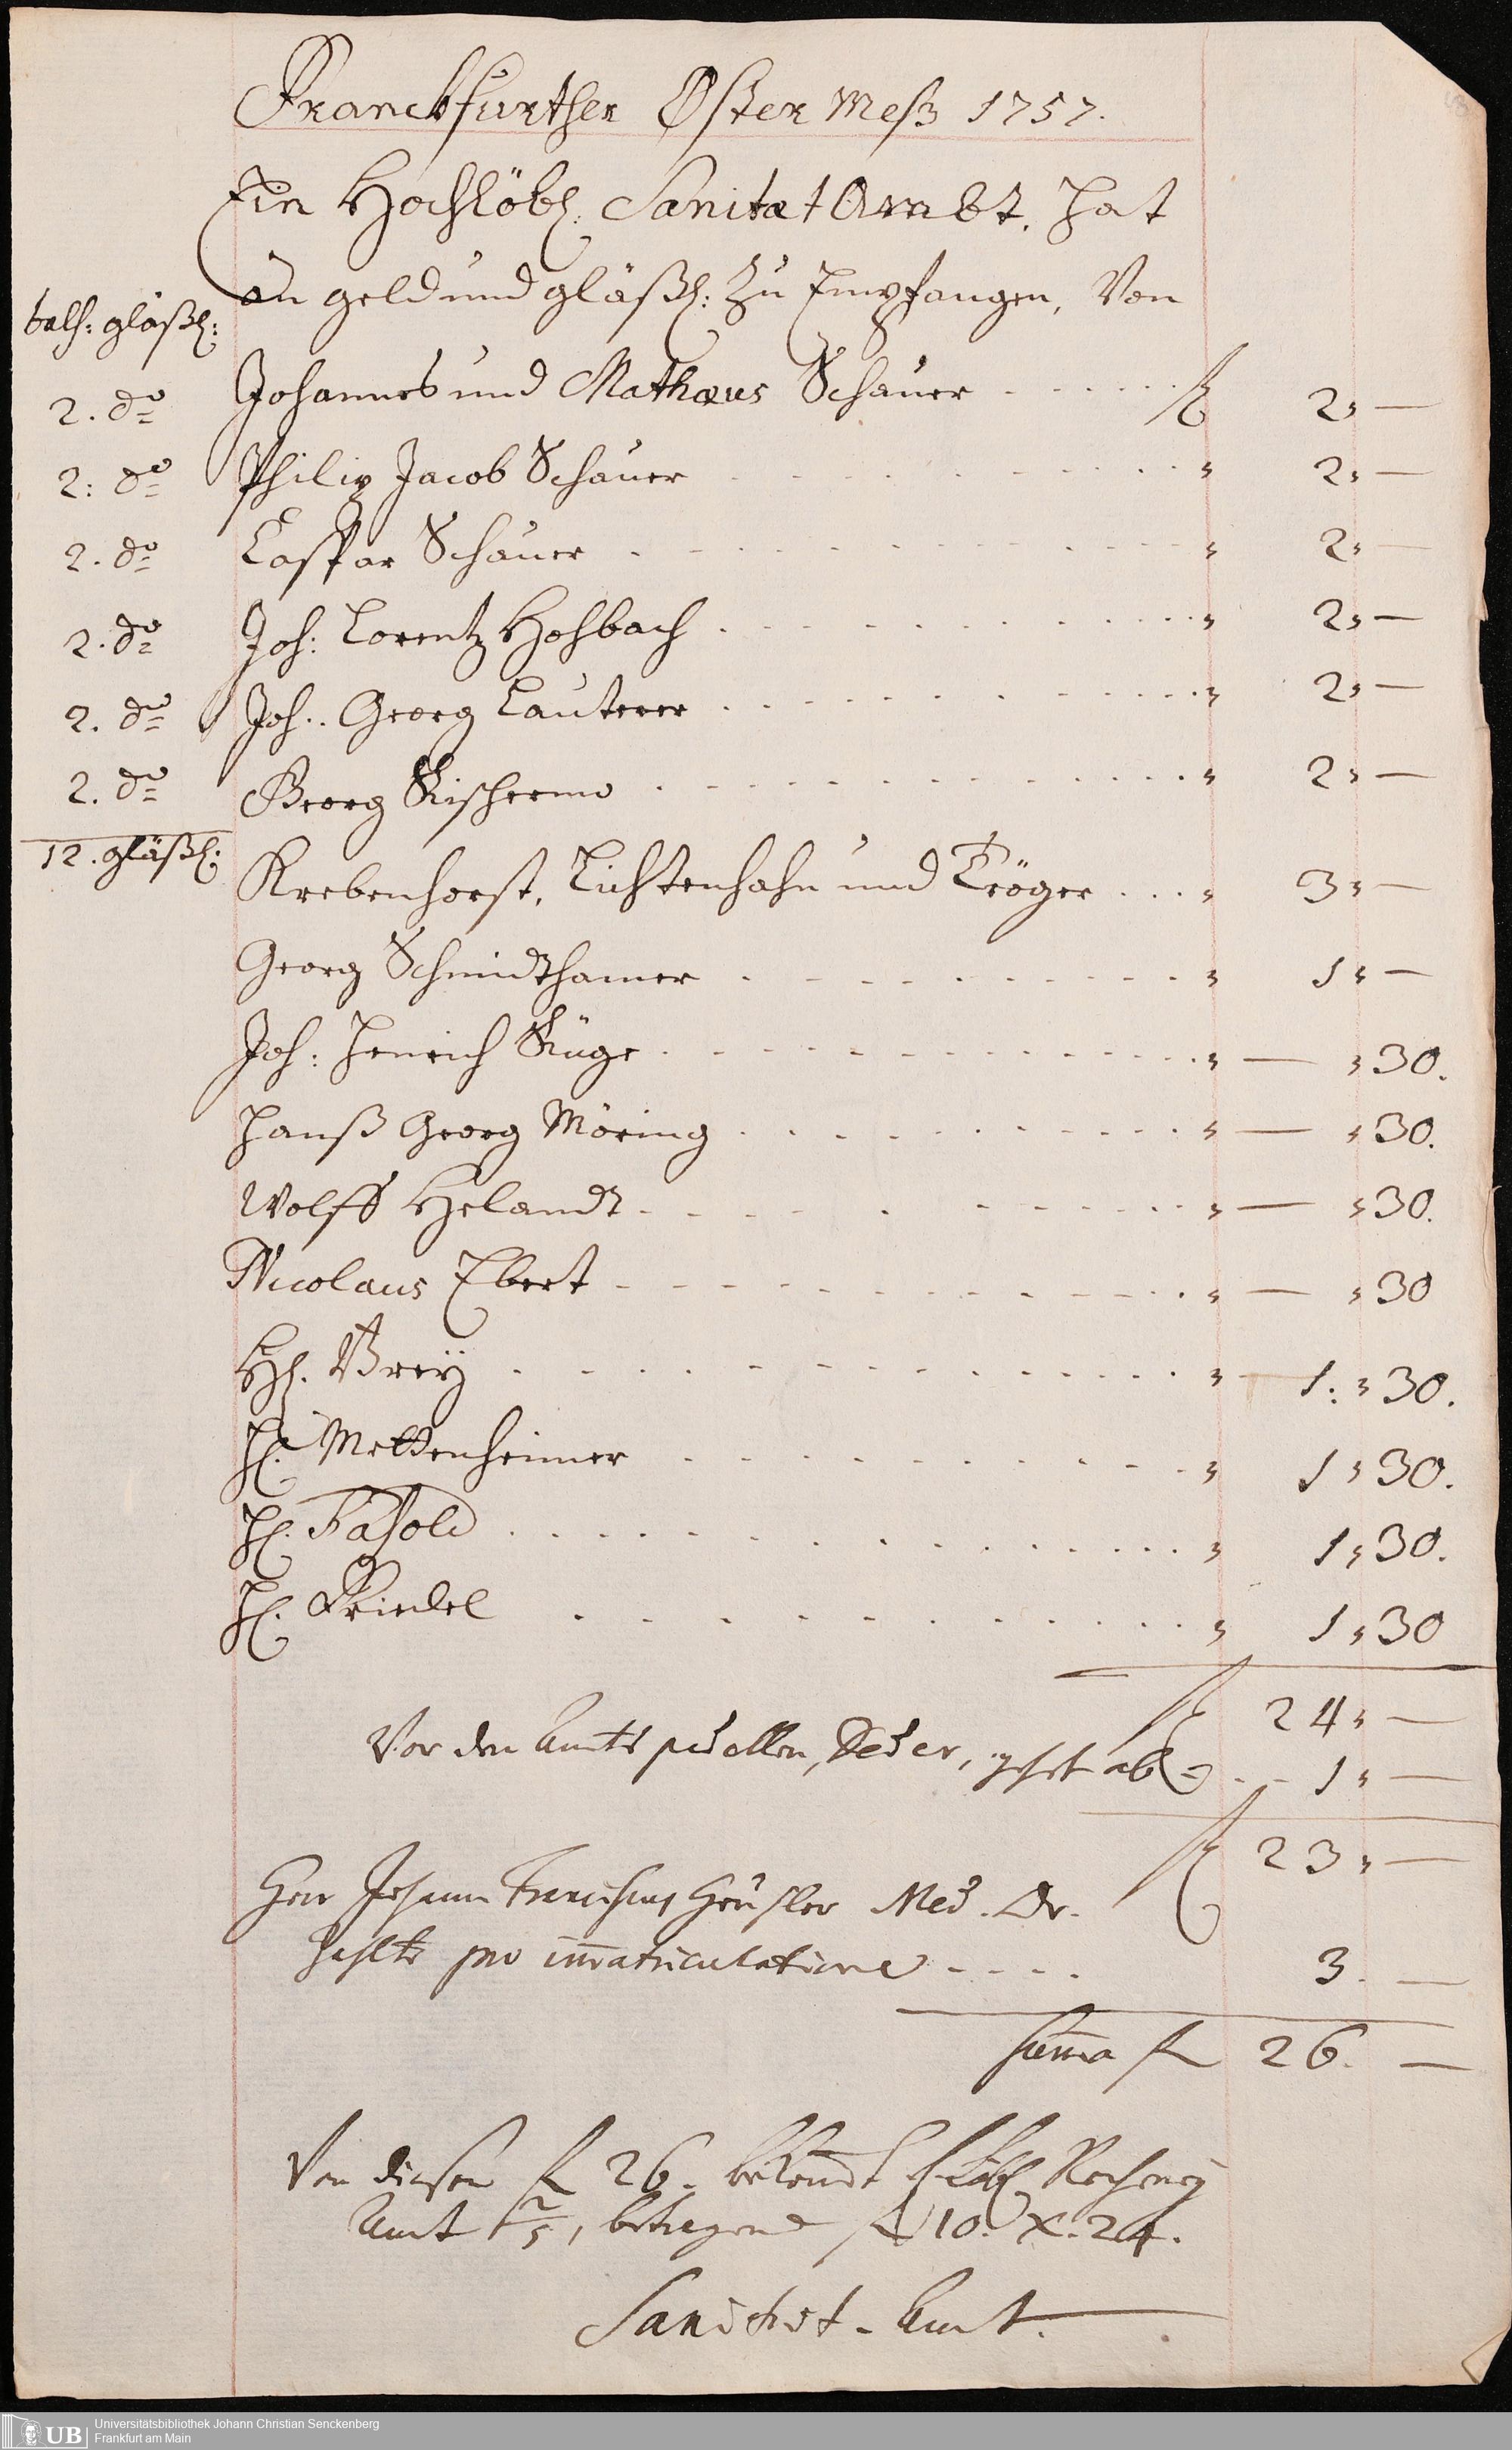 Franckfurther Oster Meß 1757.
Ein Hochlöbl: Sanitæt Ambt. hat
an geld und gläßl: zu Empfangen, Von
bals: gläßl:
2. do Johannes und Mathæus Schauer . . . . . . f 2 " —
2: do Philip Jacob Schauer . . . . . . " 2 " —
2. do Caspar Schauer . . . . . . " 2 " —
2. do Joh: Lorentz Hohbach . . . . . . " 2 " —
2. do Joh: Georg Lauterer . . . . . . " 2 " —
2. do Georg . . . . . . " 2 " —
12. gläßl:
Krebenhorst, Lichtenhahn und Tröger . . . " 3 " —
Georg Schmidthamer . . . . . . " 1 " —
Joh: Henrich Rüge . . . . . . " — " 30.
Hanß Georg Möring . . . . . . " — " 30.
Wolff Helandt . . . . . . " — " 30.
Nicolaus Ebert . . . . . . " — " 30
Hl. Brey . . . . . . " 1: " 30.
Hl. Mettenheimer . . . . . . " 1 " 30.
Hl. Fasold . . . . . . " 1 " 30.
Hl. Friedel . . . . . . " 1 " 30
f 24 " —
Vor den Amts pedellen, Deder, geht ab - - 1 " —
f 23 " —
Herr Johann Franciscus Med. Dr.
zahlte pro im̄atriculatione - - - - 3. —
Sum̄a f 26. —
Von diesen f 26. bekom̄t Löbl. Rechney
Amt 2/5, betragend f 10. x. 24.
Sanitæt-Amt.
Universitätsbibliothek Johann Christian Senckenberg
Frankfurt am Main
UB